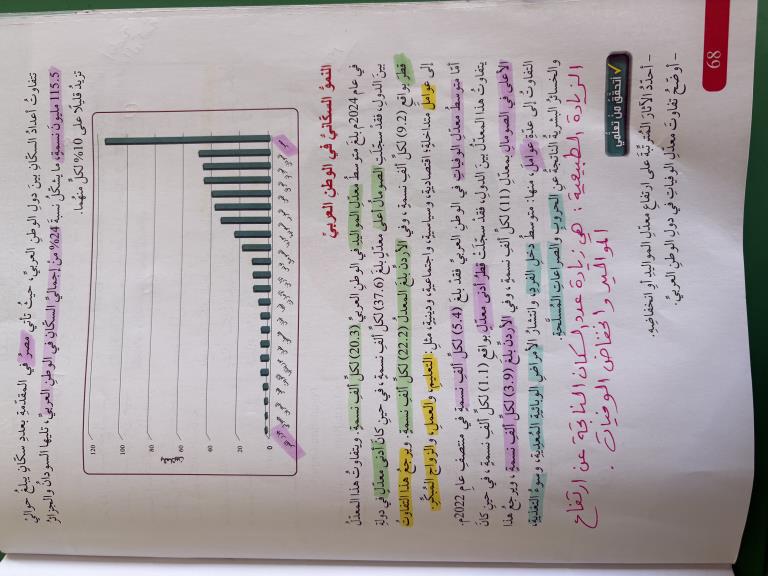 تتفاوتُ أعدادُ السكّانِ بينَ دولِ الوطنِ العربيِّ، حيثُ تأتي مصرُ في المقدّمةِ بعددِ سكّانٍ يبلغُ حواليْ
115.5 مليونَ نسمةٍ، ما يشكّلُ نسبةَ 24% منْ إجماليِّ السكّانِ في الوطنِ العربيِّ، تليها السودانُ والجزائرُ
تزيدُ قليلًا على 10% لكلٍّ منهُما.
120
100
80
60
40
20
0
النموُّ السكّانيُّ في الوطنِ العربيِّ
في عامِ 2024م بلغَ متوسطُ معدّلِ المواليدِ في الوطنِ العربيِّ (20.3) لكلِّ ألفِ نسمةٍ. ويتفاوتُ هذا المعدّلُ
بينَ الدولِ، فقدْ سجّلَتِ الصومالُ أعلى معدّلٍ بلغَ (37.6) لكلِّ ألفِ نسمةٍ، في حينِ كانَ أدنى معدّلٍ في دولةِ
قطرَ بواقعِ (9.2) لكلِّ ألفِ نسمةٍ، وفي الأردنِّ بلغَ المعدّلُ (22.2) لكلِّ ألفِ نسمةٍ. ويرجعُ هذا التفاوتُ
إلى عواملَ متداخلةٍ: اقتصاديةٍ، وسياسيةٍ، واجتماعيةٍ، ودينيةٍ، مثلِ: التعليمِ، والعملِ، والزواجِ المُبكّرِ.
أمّا متوسطُ معدّلِ الوفياتِ في الوطنِ العربيِّ فقدْ بلغَ (5.4) لكلِّ ألفِ نسمةٍ في منتصفِ عامِ 2022م.
يتفاوتُ هذا المعدّلُ بينَ الدولِ، فقدْ سجّلَتْ قطرُ أدنى معدّلٍ بواقعِ (1.1) لكلِّ ألفِ نسمةٍ، في حينِ كانَ
الأعلى في الصومالِ بمعدّلِ (11) لكلِّ ألفِ نسمةٍ، وفي الأردنِّ بلغَ (3.9) لكلِّ ألفِ نسمةٍ، ويرجعُ هذا
التفاوتُ إلى عدّةِ عواملَ، منها: متوسطُ دخلِ الفردِ، وانتشارُ الأمراضِ الوبائيةِ المُعديةِ، وسوءُ التغذيةِ،
والخسائرُ البشريةُ الناتجةُ عنِ الحروبِ والصراعاتِ المُسلّحةِ.
الزيادة الطبيعية : هي زيادة عدد السكان الناتجة عن ارتفاع
المواليد وانخفاض الوفيات .
أتحقّقُ منْ تعلُّمي
- أحدّدُ الآثارَ المُترتّبةَ على ارتفاعِ معدّلِ المواليدِ أوِ انخفاضِهِ.
- أوضّحُ تفاوتَ معدّلِ الوفياتِ في دولِ الوطنِ العربيِّ.
68